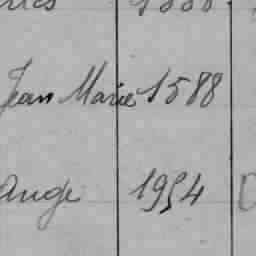 Jean Marie 1588
Ange 1954